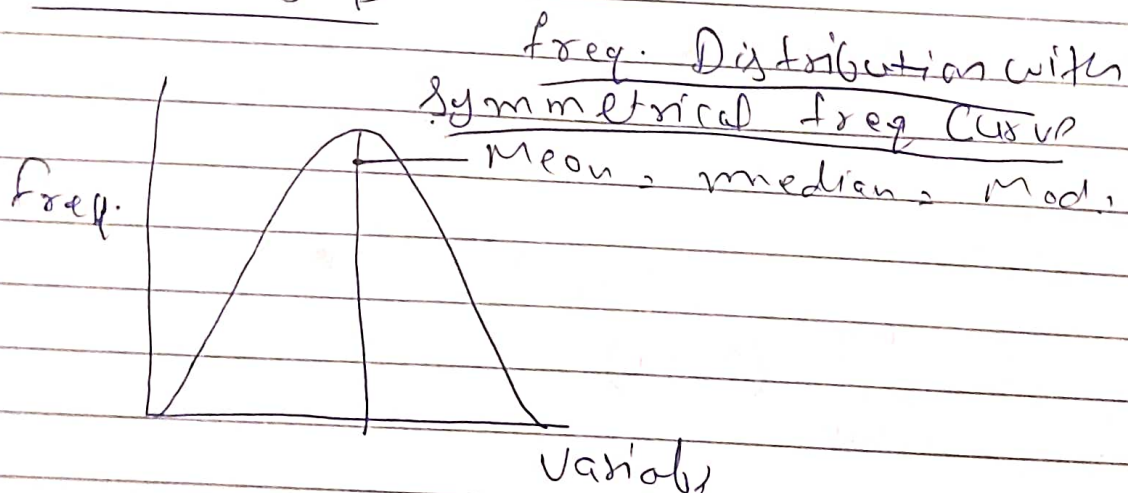 freq. Distribution with
Symmetrical freq Curve
Mean = median = Mod.
freq.
Variabs